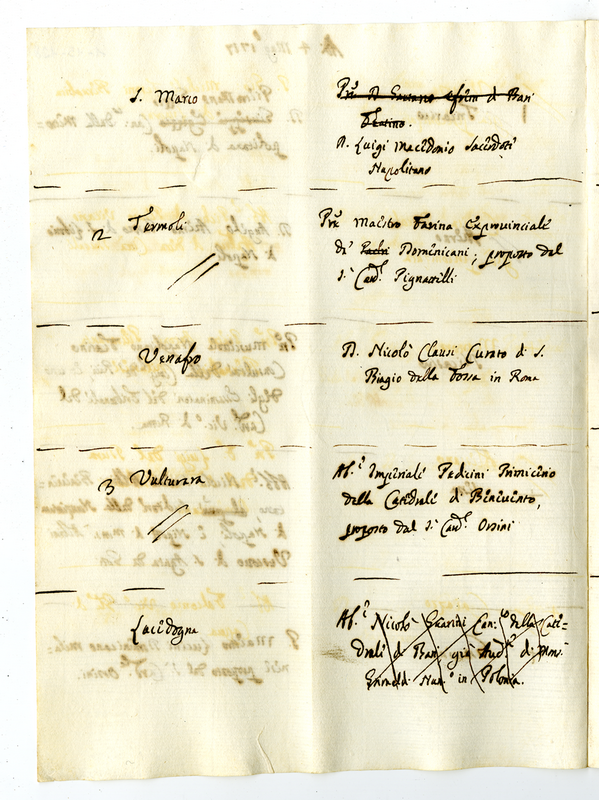 S. Marco
Pre D. Gaetano Efrem di Bari
Teatino.
D. Luigi Macedonio Sacerdote
Napolitano
2 Termoli
Pre Maestro Farina Exprovinciale
de Padri Dominicani, proposto dal
S. Card. Pignattelli
Venafro
D. Nicolò Clausi Curato di S.
Biagio della Fossa in Roma
3 Vulturara
Ab. Imperiale Pedicini Primicerio
della Catedrale di Benevento,
proposto dal S. Card. Orsini
Lacedogna
Ab. Nicolò Can. della Cate=
drale di Bari già Aud. di Mons.
Grimaldi Nun. in Polonia.